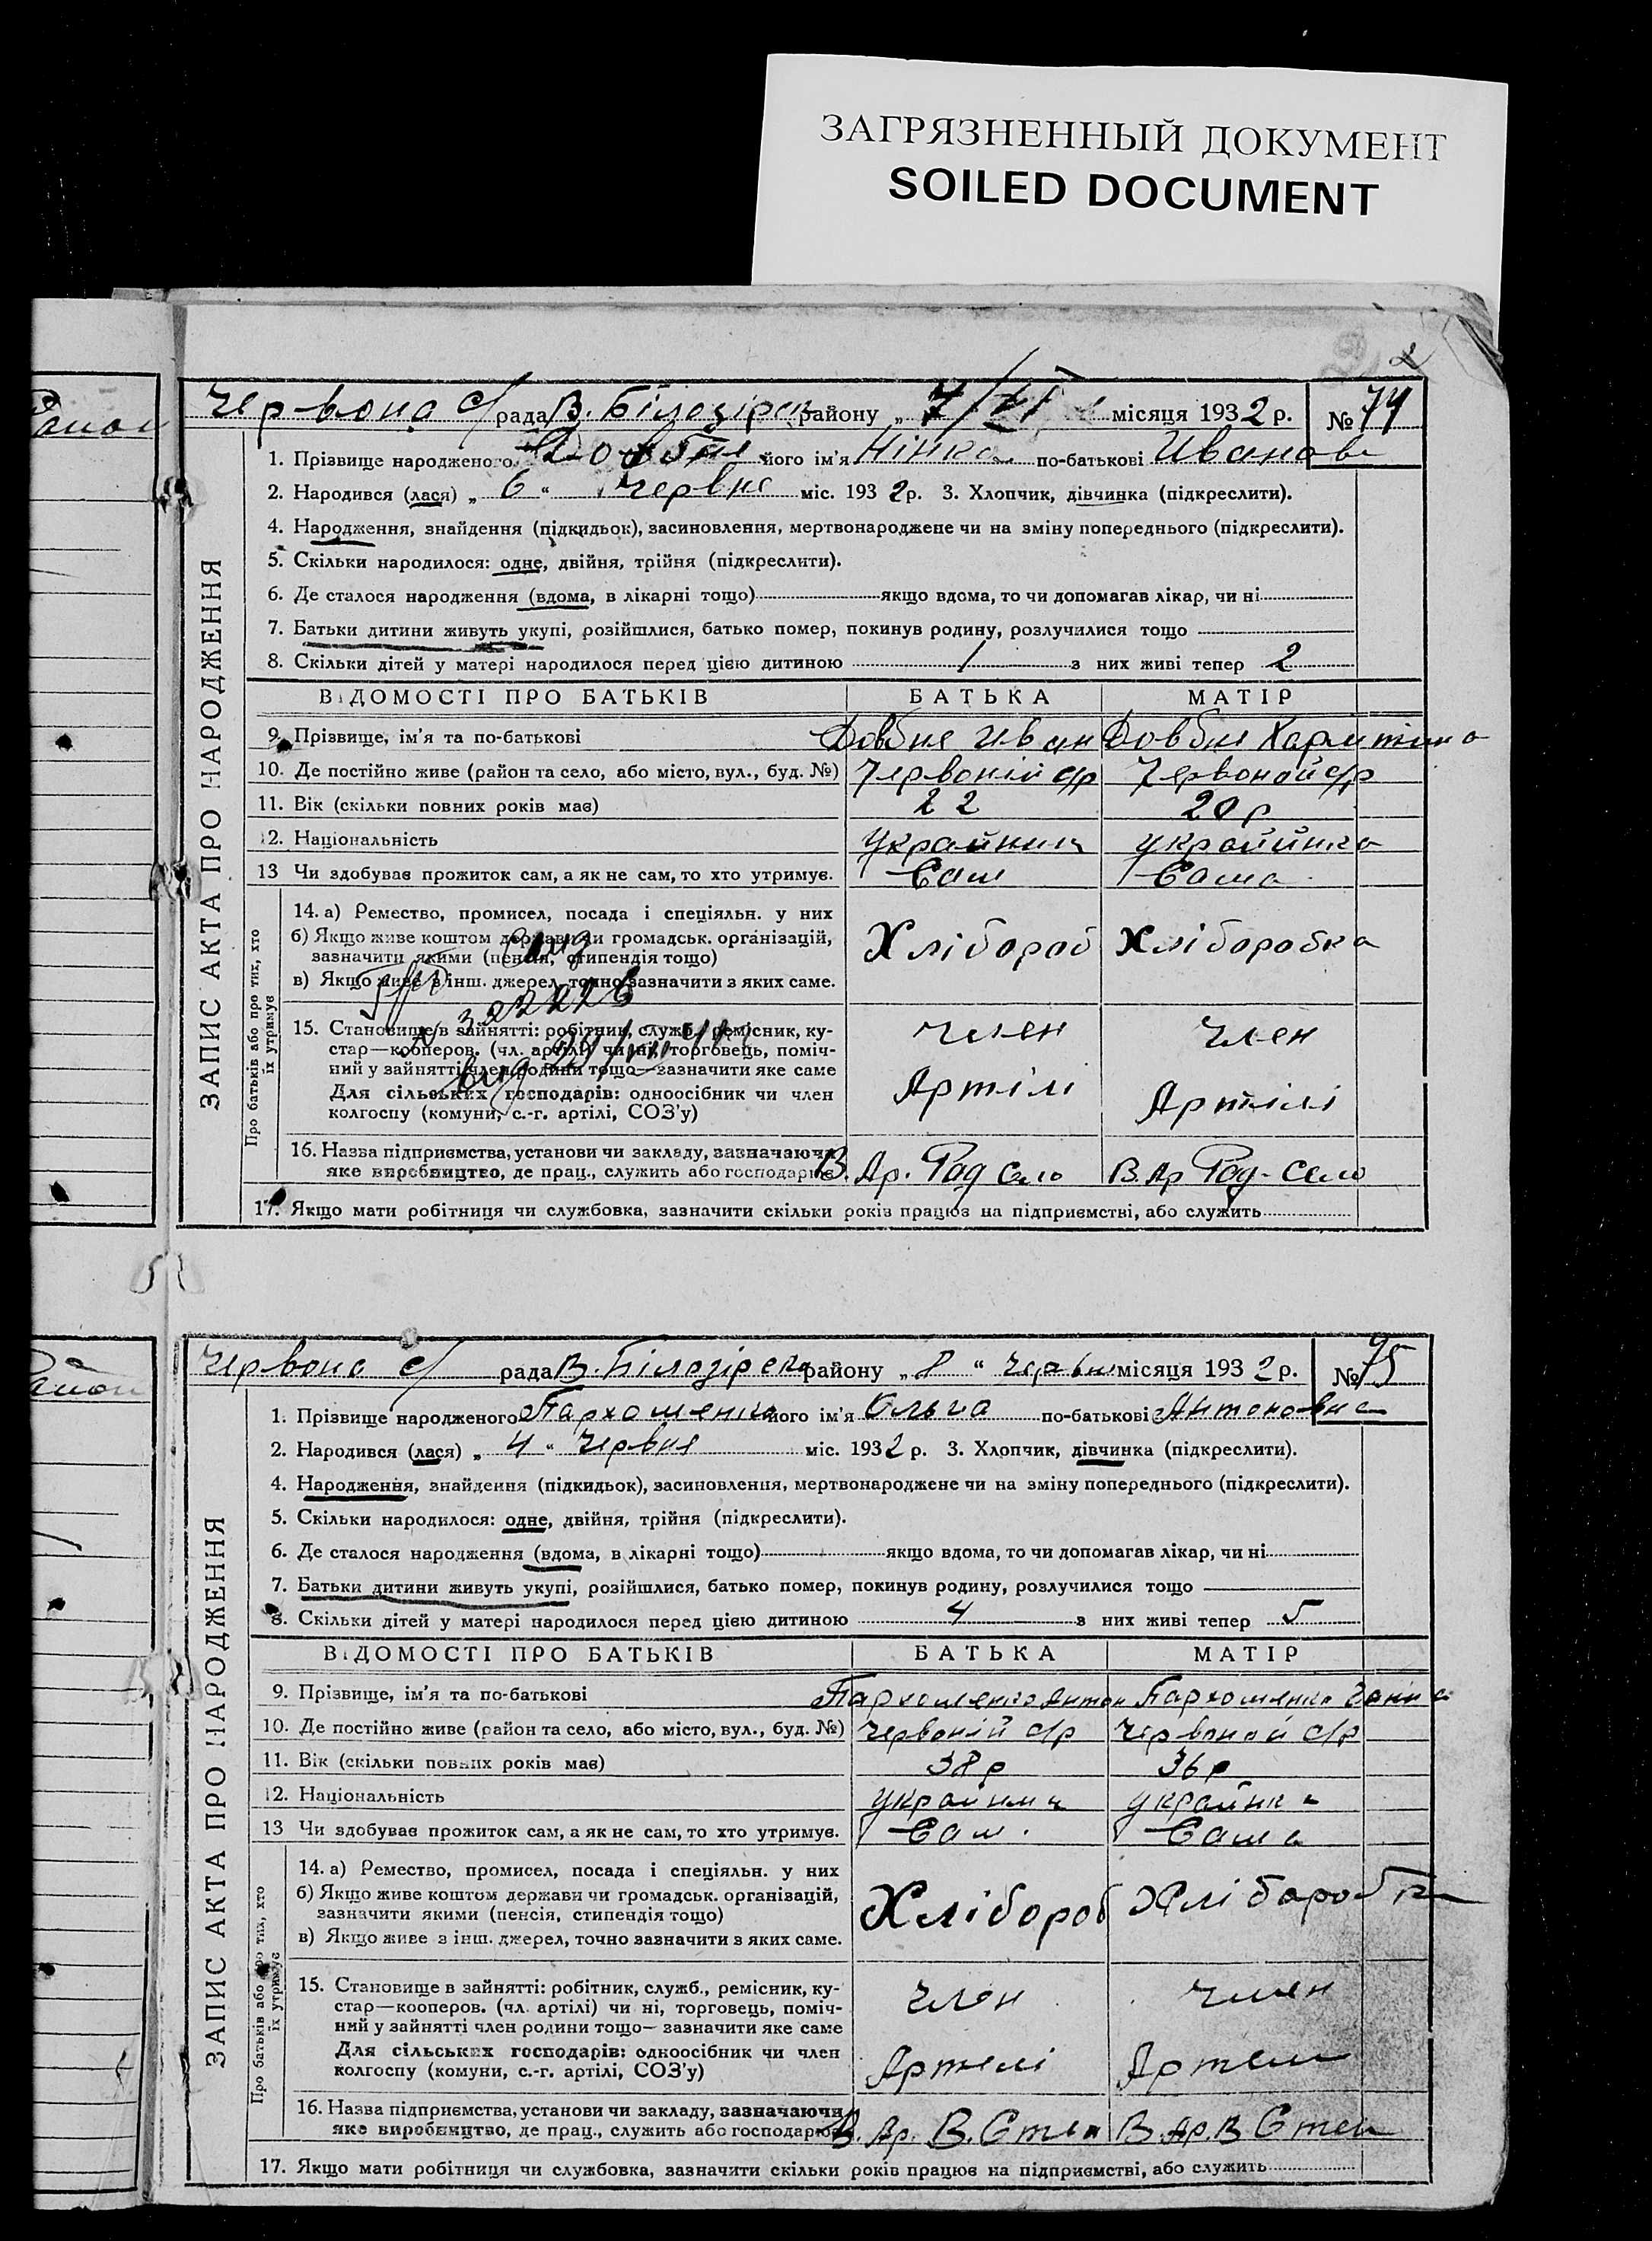 ЗАГРЯЗНЕННЫЙ ДОКУМЕНТ
SOILED DOCUMENT
2
Червона с/ рада В. Білозірськ району „ 7/VI місяця 1932 р. № 74
1. Прізвище народженого Довбня його ім'я Нінка по-батькові Ивановна
2. Народився (лася) „ 6 " Червня міс. 1932 р. 3. Хлопчик, дівчинка (підкреслити).
4. Народження, знайдення (підкидьок), засиновлення, мертвонароджене чи на зміну попереднього (підкреслити).
5. Скільки народилося: одне, двійня, трійня (підкреслити).
6. Де сталося народження (вдома, в лікарні тощо) якщо вдома, то чи допомагав лікар, чи ні
7. Батьки дитини живуть укупі, розійшлися, батько помер, покинув родину, розлучилися тощо
8. Скільки дітей у матері народилося перед цією дитиною 1 з них живі тепер 2
ВІДОМОСТІ ПРО БАТЬКІВ БАТЬКА МАТІР
9. Прізвище, ім'я та по-батькові Довбня Иван Довбня Харитина
10. Де постійно живе (район та село, або місто, вул., буд. №) Червоній с/р Червоной с/р
11. Вік (скільки повних років має) 22 20 р
12. Національність Украйниц украйинка
13 Чи здобуває прожиток сам, а як не сам, то хто утримує. Сам Сама
14. а) Ремество, промисел, посада і спеціяльн. у них
б) Якщо живе коштом держави чи громадськ. організацій,
зазначити якими (пенсія, стипендія тощо) Хлібороб Хліборобка
в) Якщо живе з інш. джерел, точно зазначити з яких саме.
15. Становище в зайнятті: робітник, служб., ремісник, ку- член член
стар—кооперов. (чл. артілі) чи ні, торговець, поміч-
ний у зайнятті член родини тощо—зазначити яке саме
Для сільських господарів: одноосібник чи член Артілі Артілі
колгоспу (комуни, с.-г. артілі, СОЗ'у)
16. Назва підприємства, установи чи закладу, зазначаючи
яке виробництво, де прац., служить або господарює В. Ар. Рад Село В. Ар Рад-Село
17. Якщо мати робітниця чи службовка, зазначити скільки років працює на підприємстві, або служить
ЗАПИС АКТА ПРО НАРОДЖЕННЯ
Про батьків або про тих, хто
їх утримує
Червона с/ рада В. Білозірська району „ 8 " червня місяця 1932 р. № 75
1. Прізвище народженого Пархоменко його ім'я Ольга по-батькові Антоновна
2. Народився (лася) „ 4 " Червня міс. 1932 р. 3. Хлопчик, дівчинка (підкреслити).
4. Народження, знайдення (підкидьок), засиновлення, мертвонароджене чи на зміну попереднього (підкреслити).
5. Скільки народилося: одне, двійня, трійня (підкреслити).
6. Де сталося народження (вдома, в лікарні тощо) якщо вдома, то чи допомагав лікар, чи ні
7. Батьки дитини живуть укупі, розійшлися, батько помер, покинув родину, розлучилися тощо
8. Скільки дітей у матері народилося перед цією дитиною 4 з них живі тепер 5
ВІДОМОСТІ ПРО БАТЬКІВ БАТЬКА МАТІР
9. Прізвище, ім'я та по-батькові Пархоменко Антон Пархоменко Ганна
10. Де постійно живе (район та село, або місто, вул., буд. №) Червоній с/р Червоной с/р
11. Вік (скільки повних років має) 38 р 36 р
12. Національність украйинц украйнка
13 Чи здобуває прожиток сам, а як не сам, то хто утримує. Сам. Сама
14. а) Ремество, промисел, посада і спеціяльн. у них
б) Якщо живе коштом держави чи громадськ. організацій, Хлібороб Хліборобка
зазначити якими (пенсія, стипендія тощо)
в) Якщо живе з інш. джерел, точно зазначити з яких саме.
15. Становище в зайнятті: робітник, служб., ремісник, ку- член член
стар—кооперов. (чл. артілі) чи ні, торговець, поміч-
ний у зайнятті член родини тощо—зазначити яке саме
Для сільських господарів: одноосібник чи член Артелі Артели
колгоспу (комуни, с.-г. артілі, СОЗ'у)
16. Назва підприємства, установи чи закладу, зазначаючи
яке виробництво, де прац., служить або господарює В. Ар. В. Степ В. Ар. В Степ
17. Якщо мати робітниця чи службовка, зазначити скільки років працює на підприємстві, або служить
ЗАПИС АКТА ПРО НАРОДЖЕННЯ
Про батьків або про тих, хто
їх утримує